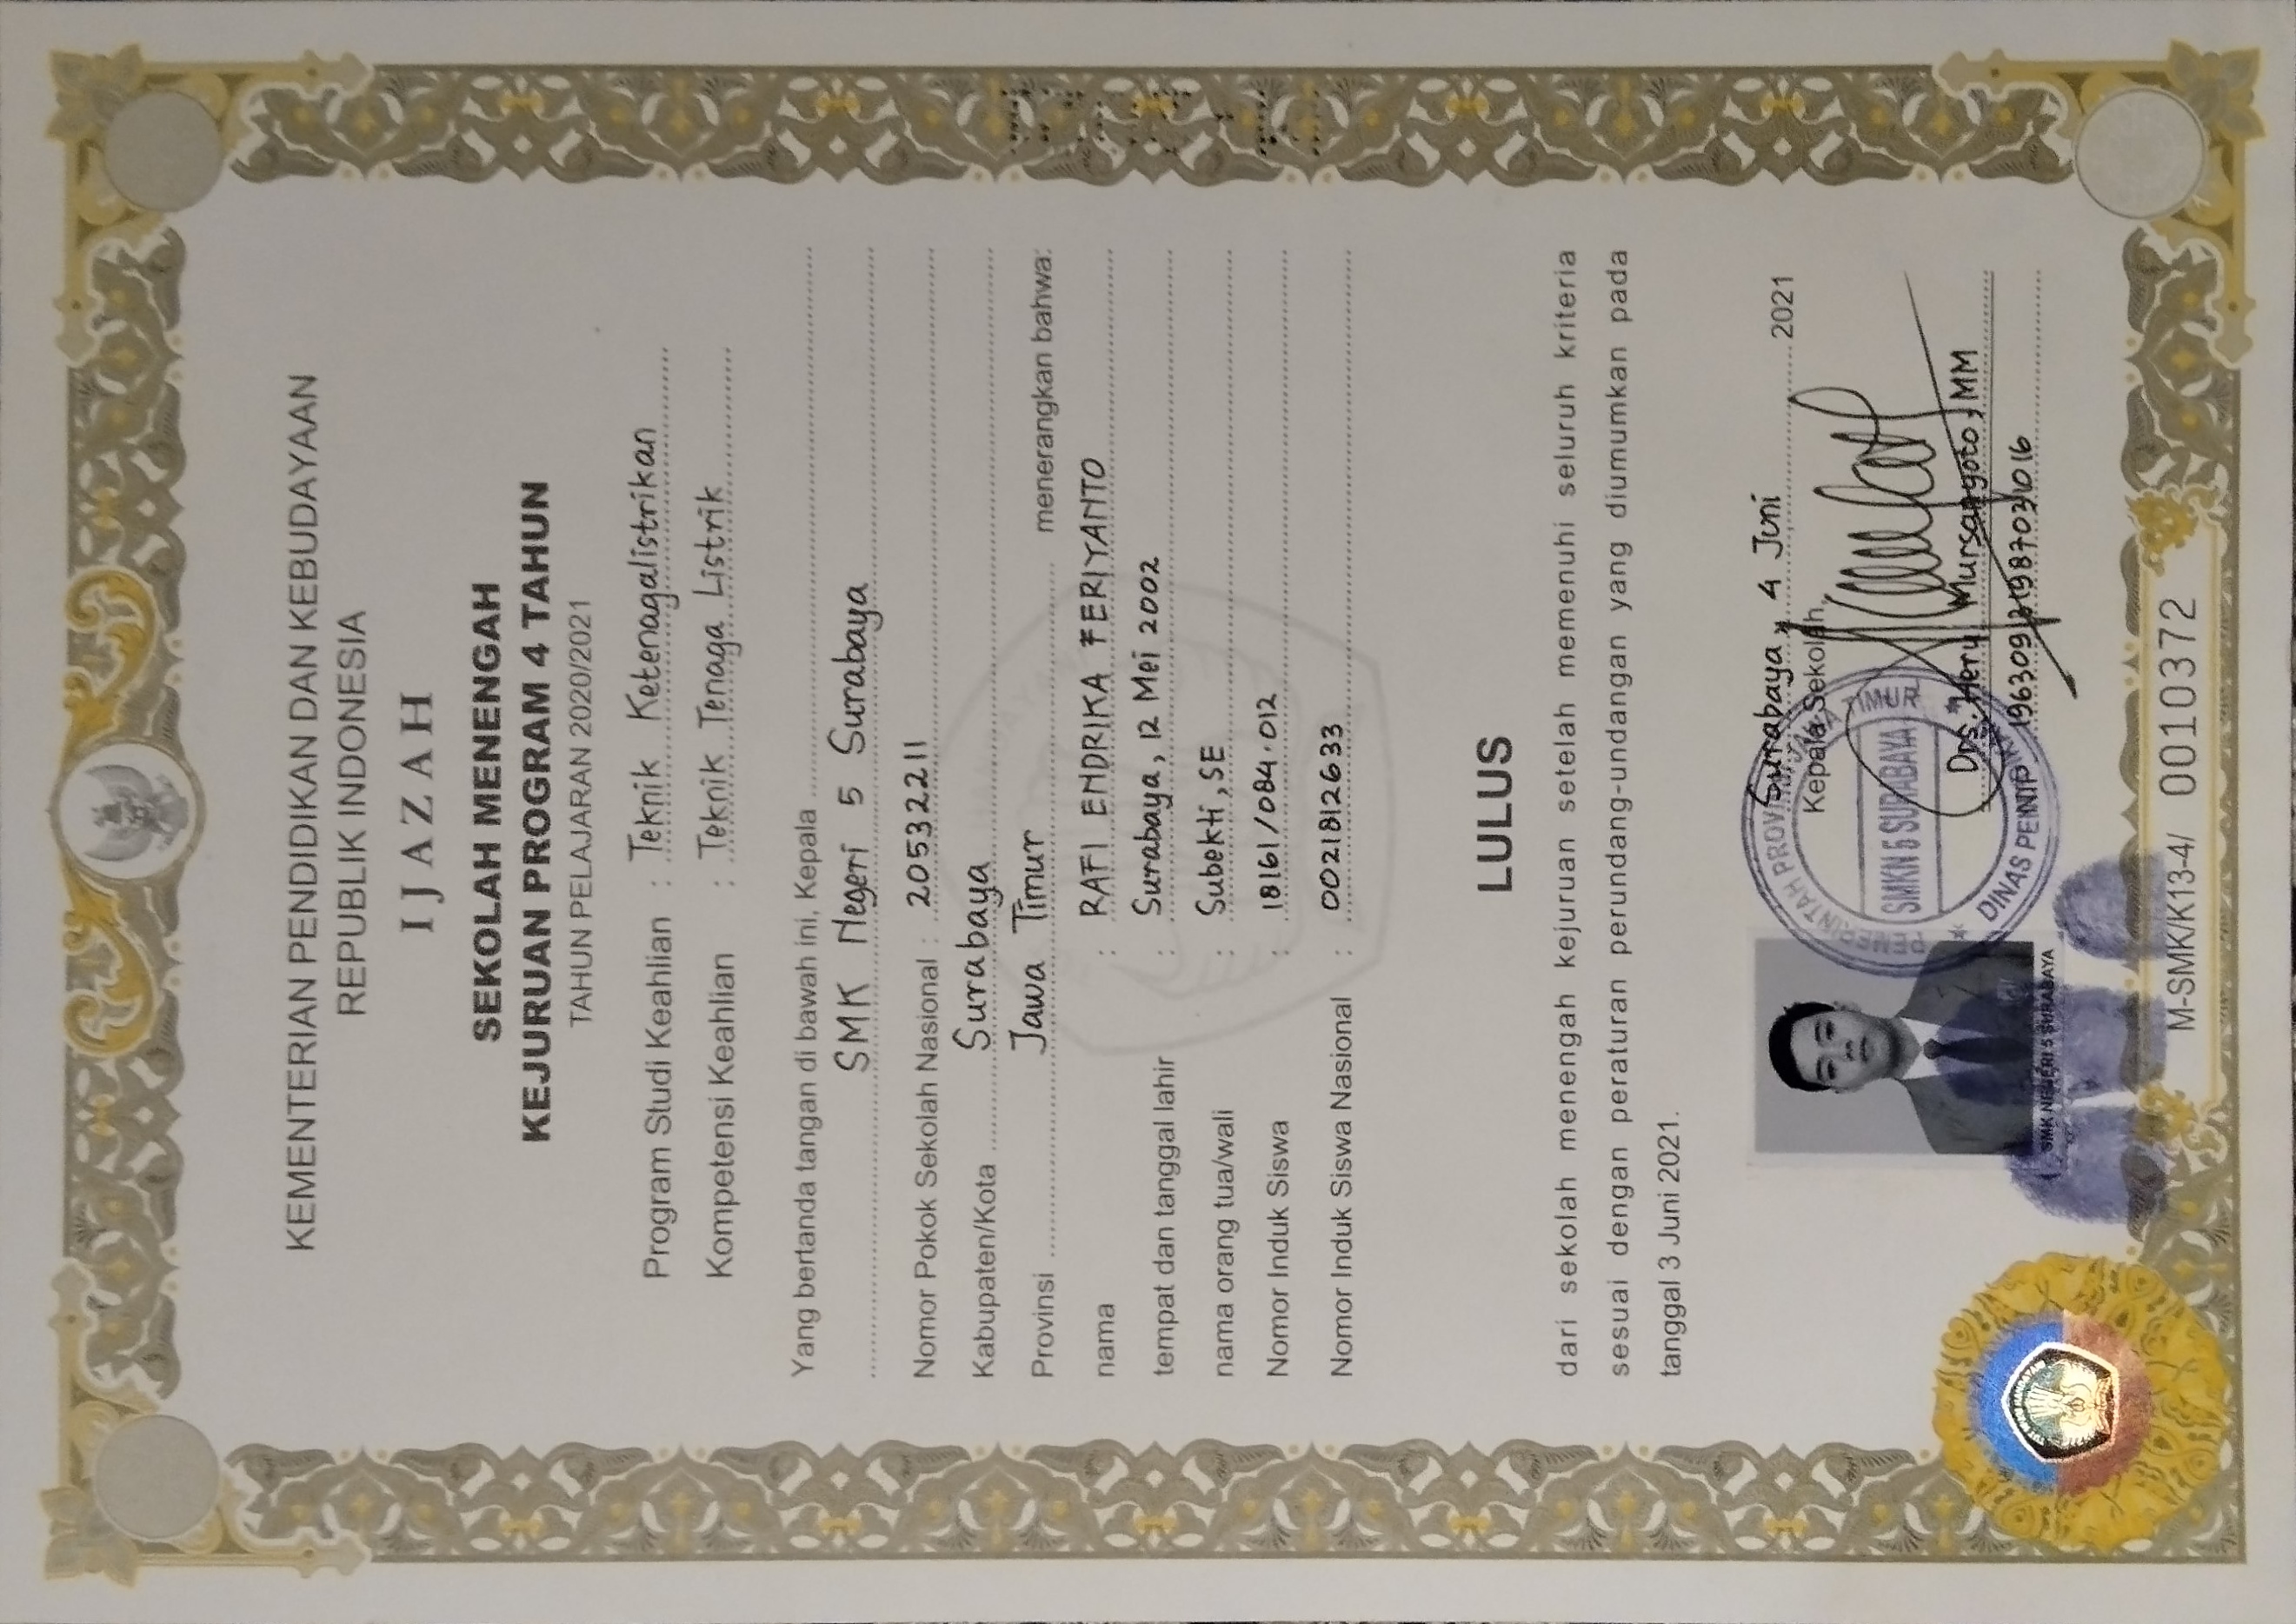 KEMENTERIAN PENDIDIKAN DAN KEBUDAYAAN
REPUBLIK INDONESIA
IJAZAH
SEKOLAH MENENGAH
KEJURUAN PROGRAM 4 TAHUN
TAHUN PELAJARAN 2020/2021
Program Studi Keahlian : Teknik Ketenagalistrikan
Kompetensi Keahlian : Teknik Tenaga Listrik
Yang bertanda tangan di bawah ini, Kepala
SMK Negeri 5 Surabaya
Nomor Pokok Sekolah Nasional : 20532211
Kabupaten/Kota Surabaya
Provinsi Jawa Timur menerangkan bahwa:
nama : RAFI ENDRIKA FERIYANTO
tempat dan tanggal lahir : Surabaya, 12 Mei 2002
nama orang tua/wali : Subekti, SE
Nomor Induk Siswa : 18161/084.012
Nomor Induk Siswa Nasional : 0021812633
LULUS
dari sekolah menengah kejuruan setelah memenuhi seluruh kriteria
sesuai dengan peraturan perundang-undangan yang diumumkan pada
tanggal 3 Juni 2021.
Surabaya, 4 Juni 2021
Kepala Sekolah,
PEMERINTAH PROVINSI JAWA TIMUR
SMKN 5 SURABAYA
DINAS PENDIDIKAN
Drs. Heru Mursanyoto, MM
NIP
SMK NEGERI 5 SURABAYA
TUT WURI HANDAYANI
M-SMK/K13-4/ 0010372